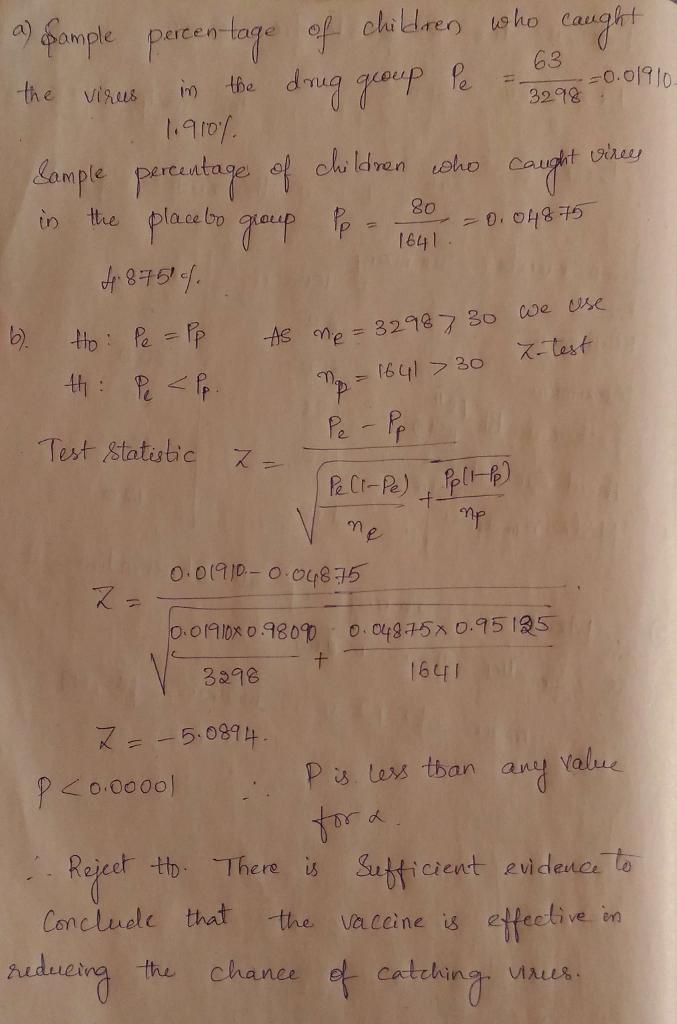 a) Sample percen-tage of children who caught
the virus in the drug group Pe = 63/3298 = 0.01910
1.910%.
Sample percentage of children who caught virus
in the placebo group Pp = 80/1641 = 0.04875
4.875%.
b). H0: Pe = Pp As ne = 3298 > 30 we use
H1: Pe < Pp. np = 1641 > 30 Z-test
Test Statistic Z = (Pe - Pp) / √(Pe(1-Pe)/ne + Pp(1-Pp)/np)
Z = (0.01910 - 0.04875) / √(0.01910x0.98090/3298 + 0.04875x0.95125/1641)
Z = -5.0894.
P < 0.00001 ∴ P is less than any value
for α.
∴ Reject H0. There is Sufficient evidence to
Conclude that the vaccine is effective in
reducing the chance of catching virus.